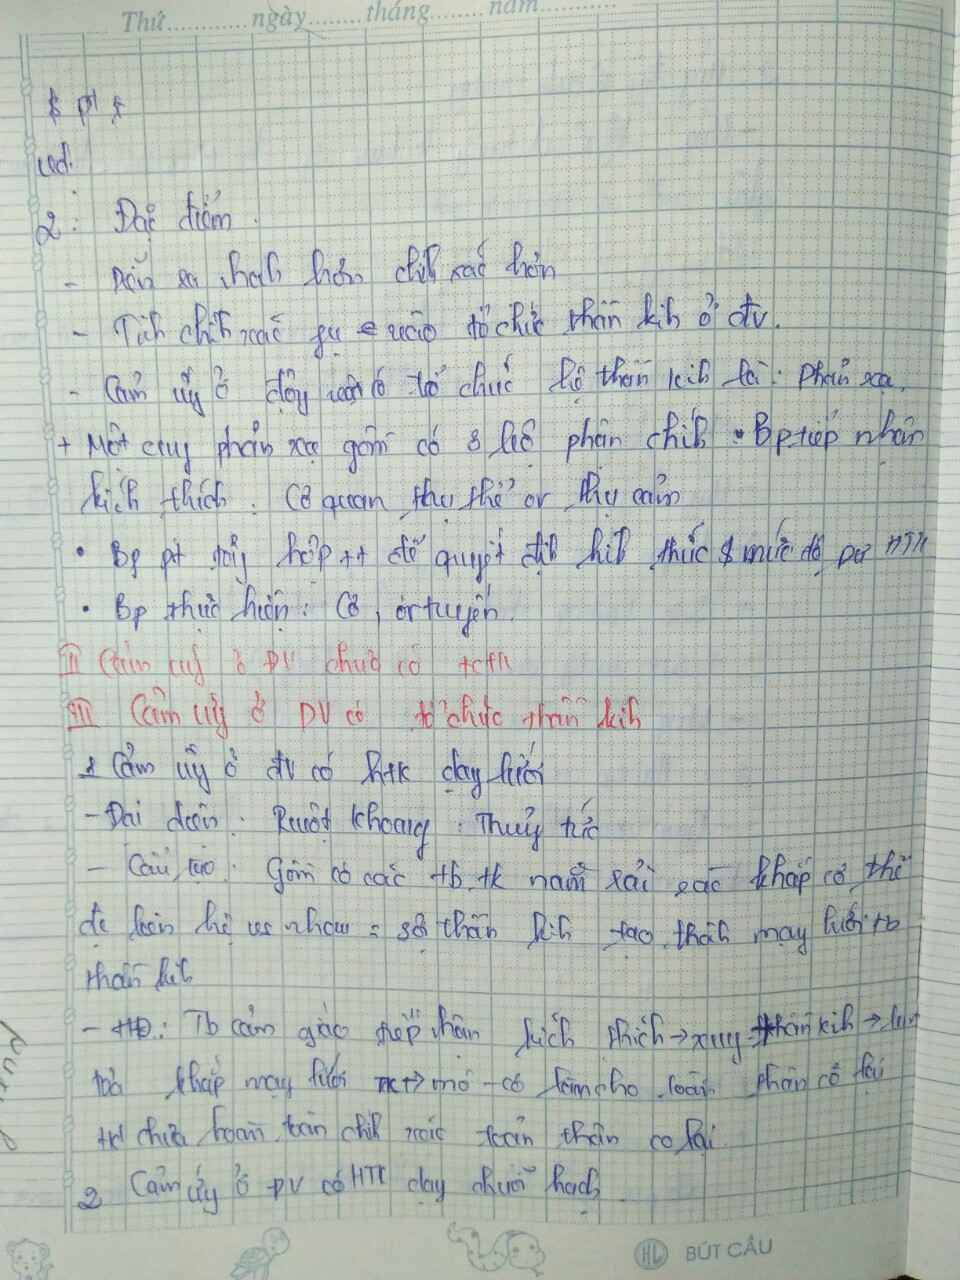 Thứ.........ngày........tháng........năm............
2: Đặc điểm.
- xa nhanh hơn chíh xác hơn
- Tíh chíh xác vào tổ chức thần kih ở đv.
- Cảm ứg ở độg vật có tổ chức hệ thần kih là: phản xạ.
+ Một cug phản xạ gồm có 3 bộ phận chíh • Bp tiếp nhận
kích thích: Cơ quan thụ thể or thụ cảm
• Bp pt tổg hợp tt để quyết địh hìh thức & mức độ pư
• Bp thực hiện: Cơ, or tuyến.
II Cảm ứg ở ĐV chưa có tctk
III Cảm ứg ở ĐV có tổ chức thần kih
1 Cảm ứg ở đv có htk dạg lưới
- Đại diện: Ruột khoang: Thuỷ tức
- Cấu tạo: Gồm có các tb tk nằm rải rác khắp cơ thể
để liên hệ vs nhau = sợi thần kih tạo thàh mạg lưới tb
thần kih
- HĐ: Tb cảm giác tiếp nhận kích thích → xug thần kih → lan
toả khắp mạg lưới → mô cơ làm cho toàn thân co lại
chưa hoàn toàn chíh xác toàn thân co lại
2 Cảm ứg ở ĐV có HTK dạg chuỗi hạch
HL BÚT CÂU